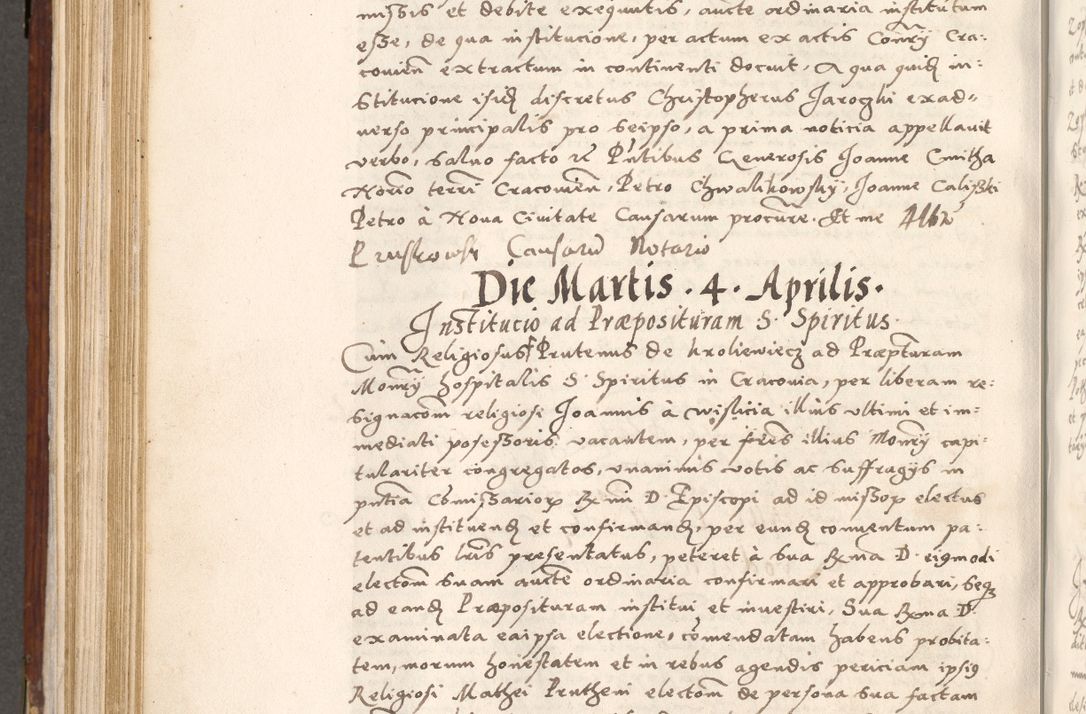 missis et debite exequutis, aucte ordinaria institutum
esse, de qua institucione, per actum ex actis Consrÿ Cra:
covien̄ extractum in continenti docuit. A qua quid in:
stitucione isid discretus Christophorus Jaroghi exad=
verso principalis pro seipso, a prima noticia appellavit
verbo, salvo facto rē Pn̄tibus Generosis Joanne Cmitha
Norīo terrī Cracovien̄, Petro Chwalikowskÿ, Joanne Caliski
Petro à Nova Civitate Causarum procūre. Et me
Pruskowski Causarū Notario
Die Martis . 4 . Aprilis.
Institucio ad Præposituram S. Spiritus.
Cum Religiosus Prutenus de Kroliewiecz ad Præpturam
Monrÿ hospitalis S. Spiritus in Cracovia, per liberam re:
signacōm religiosi Joannis à Wislicia illius ultimi et im:
mediati possessoris vacantem, per frēs illius Monrÿ capi:
tulariter congregatos, unanimis votis ac suffragÿs in
pn̄tia Cōmissarior Rmi D. Episcopi ad id missor electus
et ad instituend et confirmand, per eund conventum pa:
tentibus lrīs presentatus, peteret à sua Rma D. eigmodi
electōm suam aucte ordinaria confirmari et approbari, seq
ad eand Præposituram institui et investiri, Sua Rma D.
examinata eaipsa electione, cōmendatam habens probita:
tem, morum honestatem et in rebus agendis periciam ipsi9
Religiosi Mathei Prutheni electōm de persona sua factam